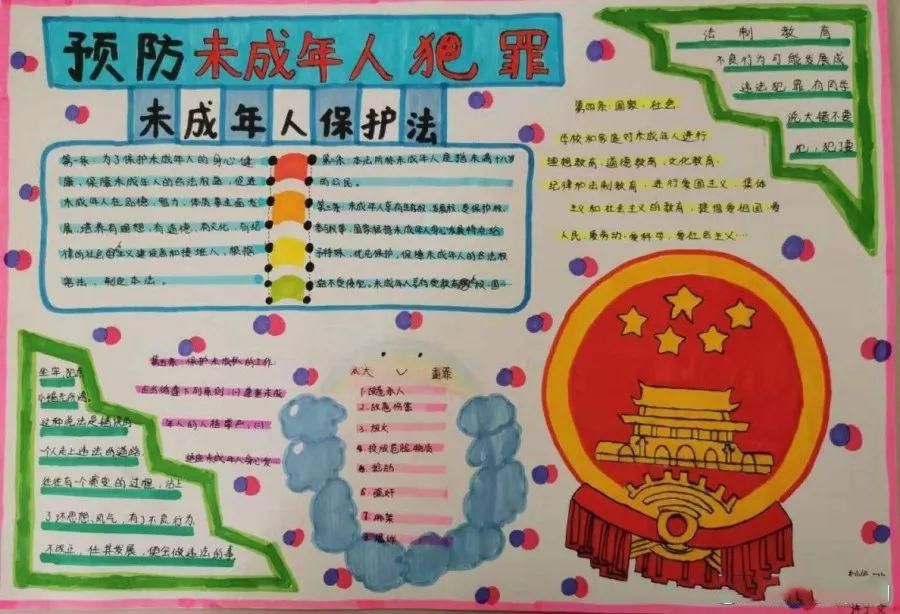 预防未成年人犯罪
未成年人保护法
第一条：为了保护未成年人的身心健
康，保障未成年人的合法权益，促进
未成年人在品德、智力、体质等方面发
展，培养有理想、有道德、有文化、有纪
律的社会主义建设者和接班人，根据
宪法，制定本法。
第二条 本法所称未成年人是指未满十八岁
的公民。
第三条 未成年人享有生存权、发展权、受保护权、
参与权等，国家根据未成年人身心发展特点给
予特殊、优先保护，保障未成年人的合法权
益不受侵犯。未成年人享有受教育权，国
第四条：国家、社会
学校和家庭对未成年人进行
理想教育、道德教育、文化教育、
纪律和法制教育，进行爱国主义、集体
主义和社会主义的教育，提倡爱祖国、爱
人民、爱劳动、爱科学、爱社会主义…
法制教育
不良行为可能发展成
违法犯罪 有同学
说大错不
犯，
坐牢，犯点
这种说法是错误的
个人走上违法的道路，
往往有一个渐变的过程，沾上
了坏思想、风气，有了不良行为
不改正，任其发展，便会做违法的事
第五条：保护未成年人的工作
应当遵循下列原则：(一)尊重未成
年人的人格尊严；(二)
适应未成年人身心发…
八大 重罪
1.故意杀人
2.故意伤害
3.放火
4.投放危险物质
5.抢劫
6.强奸
7.绑架
8.爆炸